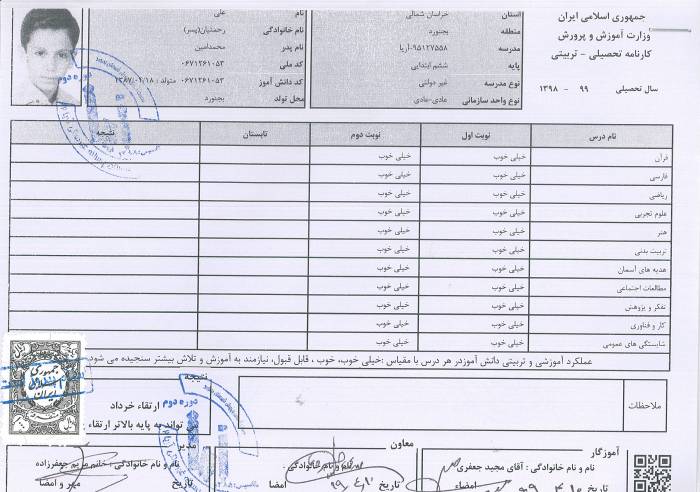 جمهوری اسلامی ایران
وزارت آموزش و پرورش
کارنامه تحصیلی - تربیتی
سال تحصیلی ۹۹ - ۱۳۹۸
استان خراسان شمالی
منطقه بجنورد
مدرسه ۹۵۱۲۷۵۵۸-آریا
پایه ششم ابتدایی
نوع مدرسه غیر دولتی
نوع واحد سازمانی عادی-عادی
نام علی
نام خانوادگی رحمتیان(پسر)
نام پدر محمدامین
کد ملی ۰۶۷۱۲۶۱۰۵۳
کد دانش آموز ۰۶۷۱۲۶۱۰۵۳ متولد : ۱۳۸۷/۰۲/۱۸
محل تولد بجنورد
نام درس نوبت اول نوبت دوم تابستان نتیجه
قرآن خیلی خوب خیلی خوب
فارسی خیلی خوب خیلی خوب
ریاضی خیلی خوب خیلی خوب
علوم تجربی خیلی خوب خیلی خوب
هنر خیلی خوب خیلی خوب
تربیت بدنی خیلی خوب خیلی خوب
هدیه های آسمان خیلی خوب خیلی خوب
مطالعات اجتماعی خیلی خوب خیلی خوب
تفکر و پژوهش خیلی خوب خیلی خوب
کار و فناوری خیلی خوب خیلی خوب
شایستگی های عمومی خیلی خوب خیلی خوب
عملکرد آموزشی و تربیتی دانش آموزدر هر درس با مقیاس :خیلی خوب، خوب ، قابل قبول، نیازمند به آموزش و تلاش بیشتر سنجیده می شود.
ملاحظات
نتیجه
دوره دوم
ارتقاء خرداد
می تواند به پایه بالاتر ارتقاء
جمهوری
اسلامی
ایران
ریال
دوره دوم
آموزگار
نام و نام خانوادگی : آقای مجید جعفری
تاریخ امضاء
معاون
نام و نام خانوادگی :
تاریخ امضا
مدیر
نام و نام خانوادگی : خانم مریم جعفرزاده
تاریخ مهر و امضا